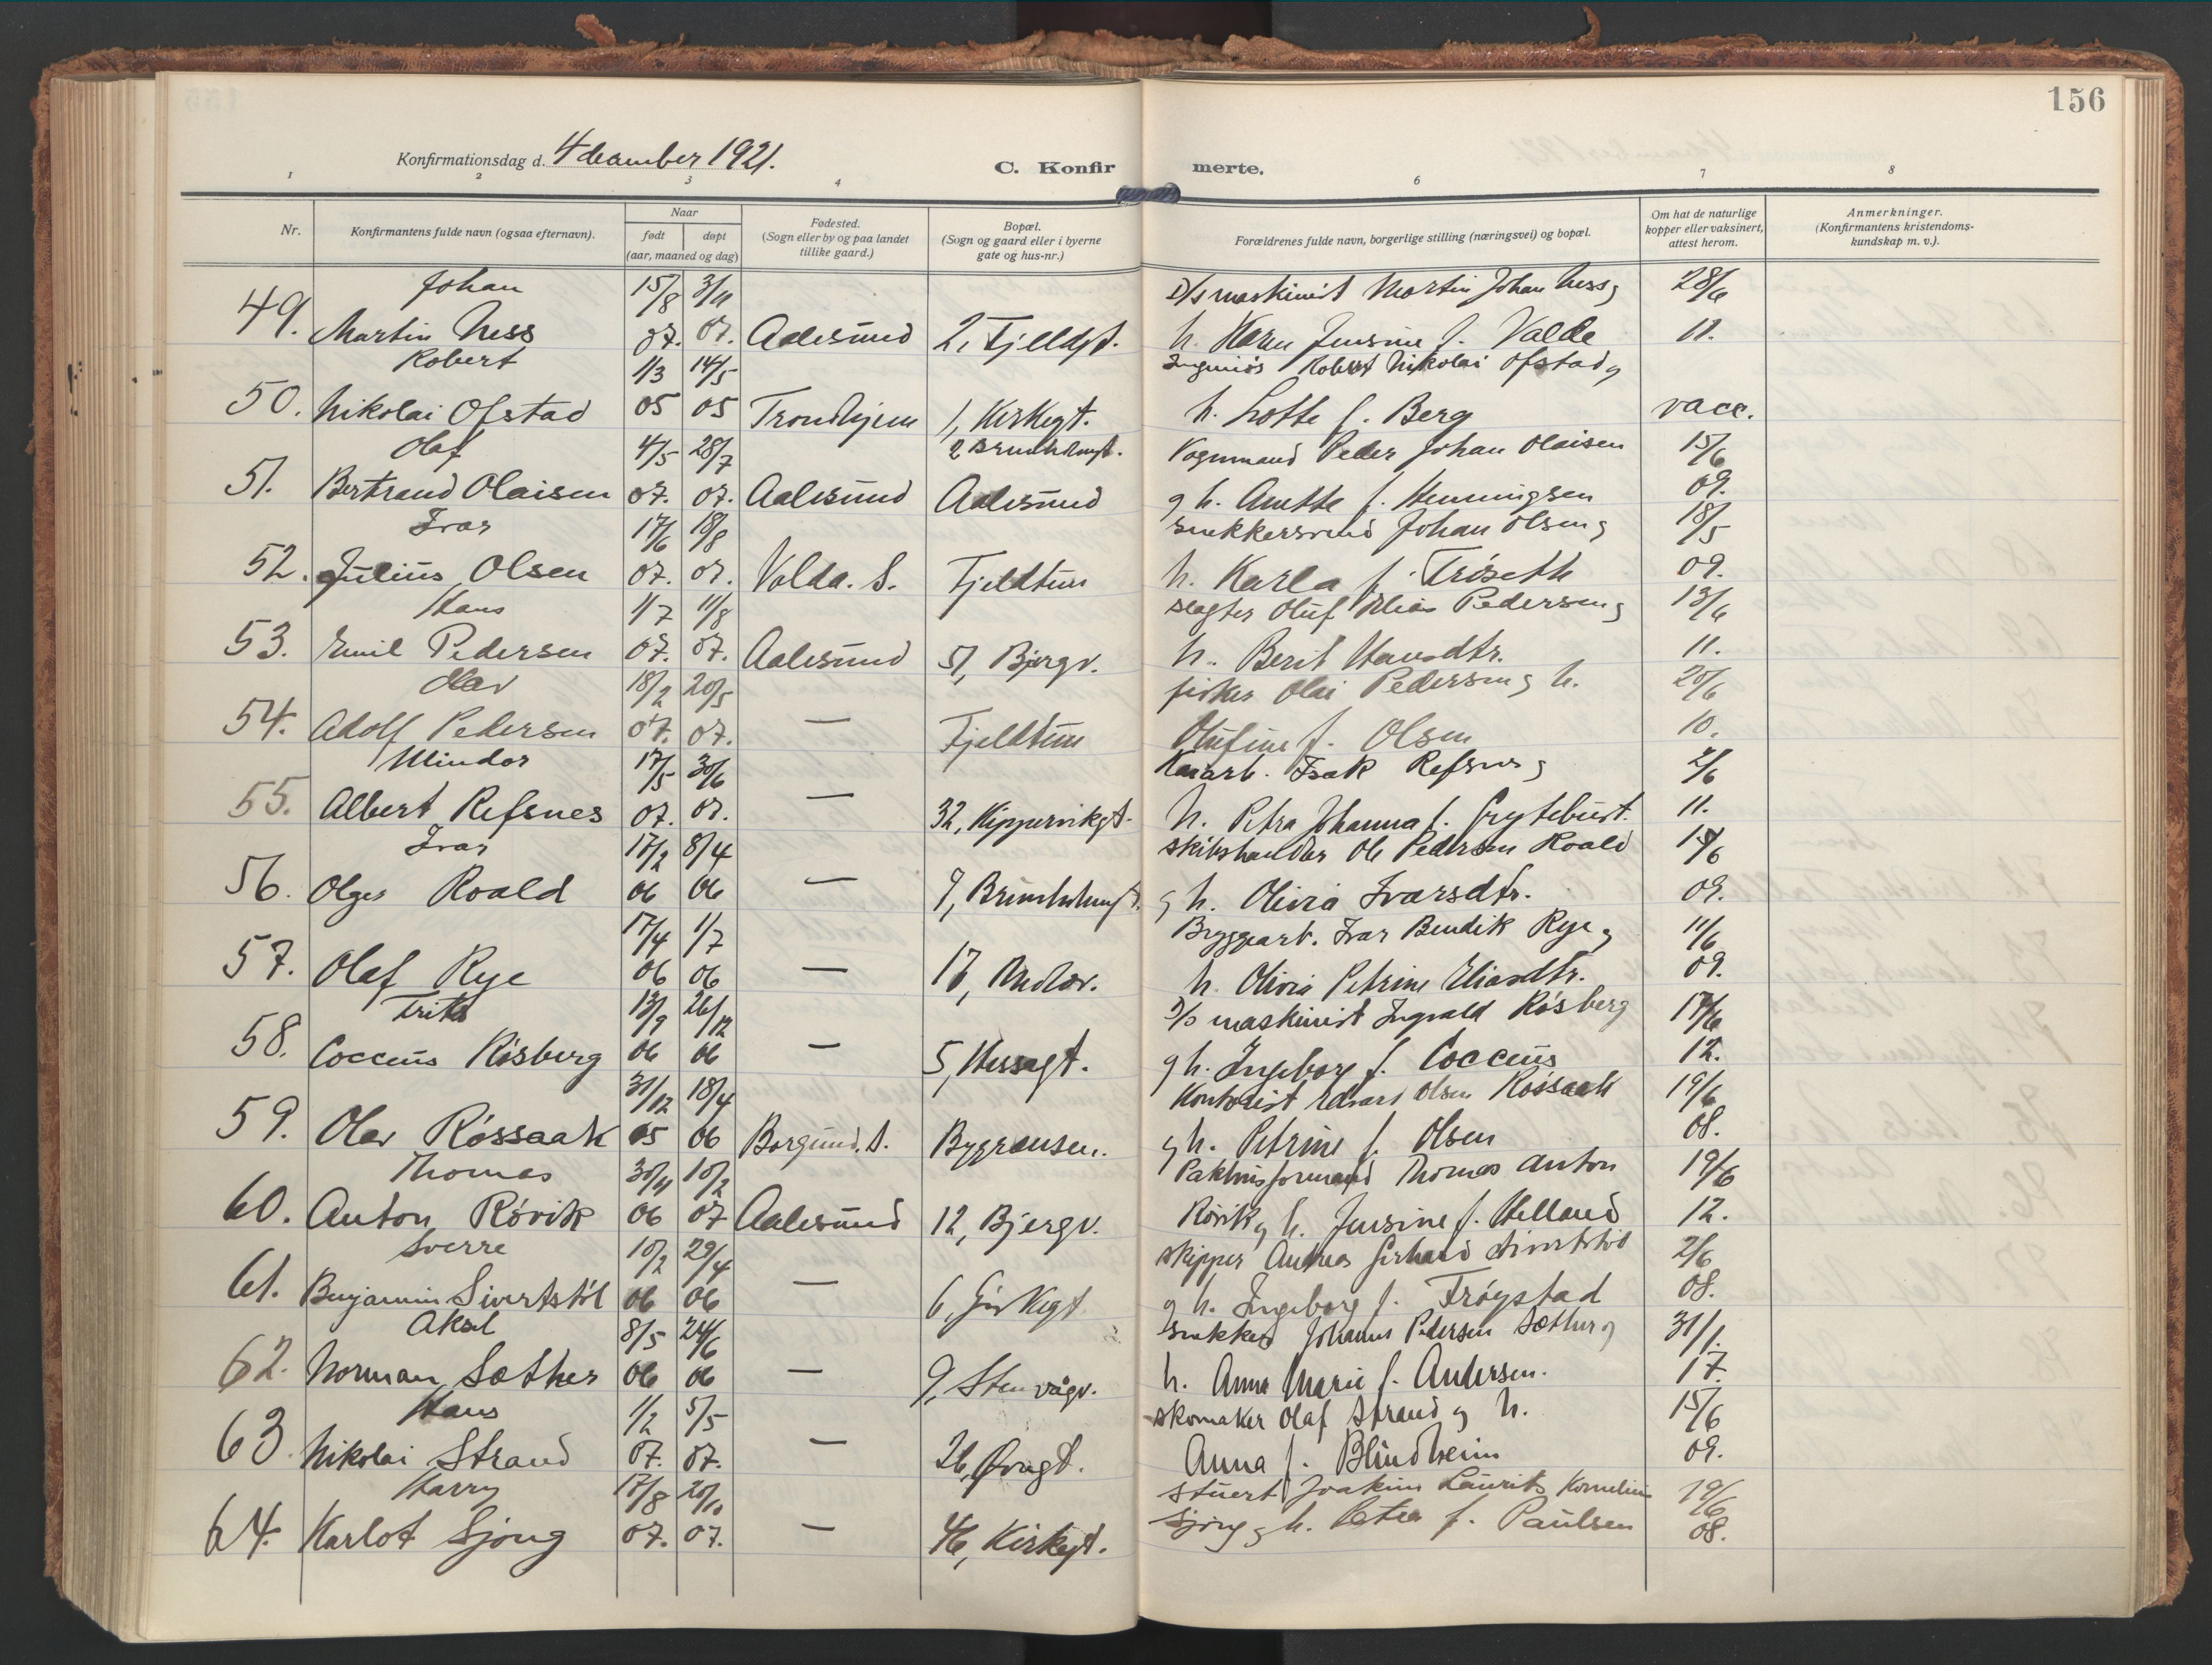 156
Konfirmationsdag d. 4 december 1921.
C. Konfirmerte.
1 2 3 4 6 7 8
Nr.
Konfirmantens fulde navn (ogsaa efternavn).
Naar
født døpt
(aar, maaned og dag)
Fødested.
(Sogn eller by og paa landet
tillike gaard.)
Bopæl.
(Sogn og gaard eller i byerne
gate og hus-nr.)
Forældrenes fulde navn, borgerlige stilling (næringsvei) og bopæl.
Om hat de naturlige
kopper eller vaksinert,
attest herom.
Anmerkninger.
(Konfirmantens kristendoms-
kundskap m. v.).
Johan 15/8 3/11 D/s maskinist Martin Johan Ness g 28/6
49. Martin Ness 07. 07. Aalesund 2, Fjeldgt. h. Karen Jensine f. Valde 11.
Robert 1/3 14/5 Ingeniør Robert Nikolai Ofstad g
50. Nikolai Ofstad 05 05 Trondhjem 1, Kirkegt. h. Lotte f. Berg vacc.
Olaf 4/5 28/7 2 Brunholmgt. Vognmand Peder Johan Olaisen 15/6
51. Bertrand Olaisen 07. 07. Aalesund Aalesund g h. Anette f. Henningsen 09.
Ivar 17/6 18/8 snekkersvend Johan Olsen g 18/5
52. Julius Olsen 07. 07. Volda. S. Fjeldtun h. Karla f. Trøseth 09.
Hans 1/7 11/8 slagter Oluf Elias Pedersen g 13/6
53. Emil Pedersen 07. 07. Aalesund 51, Bjergv. h. Berit Hansdtr. 11.
Olav 18/2 20/5 fisker Olai Pedersen g h. 20/6
54. Adolf Pedersen 07. 07. — Fjeldtun Olufine f. Olsen 10.
Mindor 17/5 30/6 Isak Refsnes g 2/6
55. Albert Refsnes 07. 07. — 32, Kippervikgt. h. Petra Johanna f. Grytebust. 11.
Ivar 17/2 8/4 skibshandler Ole Pedersen Roald 14/6
56. Olger Roald 06 06 — 9, Brunholmgt. g h. Olivia Ivarsdtr. 09.
17/4 1/7 Bryggearb. Ivar Bendik Rye g 11/6
57. Olaf Rye 06 06 — h. Olivia Petrine Eliasdtr. 09.
13/9 26/12 D/s maskinist Ingvald Risberg 17/6
58. Cocceus Risberg 06 06 — 5, Hessagt. g h. Ingeborg f. Cocceus 12.
31/12 18/4 Kontorist Edvart Olsen Røssaak 19/6
59. Olav Røssaak 05 06 Borgund. S. Bygrænsen. g h. Petrine f. Olsen 08.
Thomas 30/11 10/2 Pakhusformand Thomas Anton 19/6
60. Anton Rørvik 06 07 Aalesund 12, Bjergv. Rørvik g h. Jensine f. Helland 12.
Sverre 10/2 29/4 skipper Andreas Gerhard Sivertstøl 2/6
61. Benjamin Sivertstøl 06 06 — 6, g h. Ingeborg f. Frøystad 08.
Aksel 8/5 24/6 snekker Johannes Pedersen Sæther g 31/1.
62. Norman Sæther 06 06 — 9, Stenvågv. h. Anna Marie f. Andersen. 17.
Hans 1/2 5/5 skomaker Olaf Strand g h. 15/6
63. Nikolai Strand 07. 07. — 26, Øvregt. Anna f. Blindheim 09.
Harry 17/8 20/10 stuert Joakim Laurits Kornelius 19/6
64. Karlot Sjong 07. 07. — 46, Kirkegt. Sjong g h. Petra f. Paulsen 08.